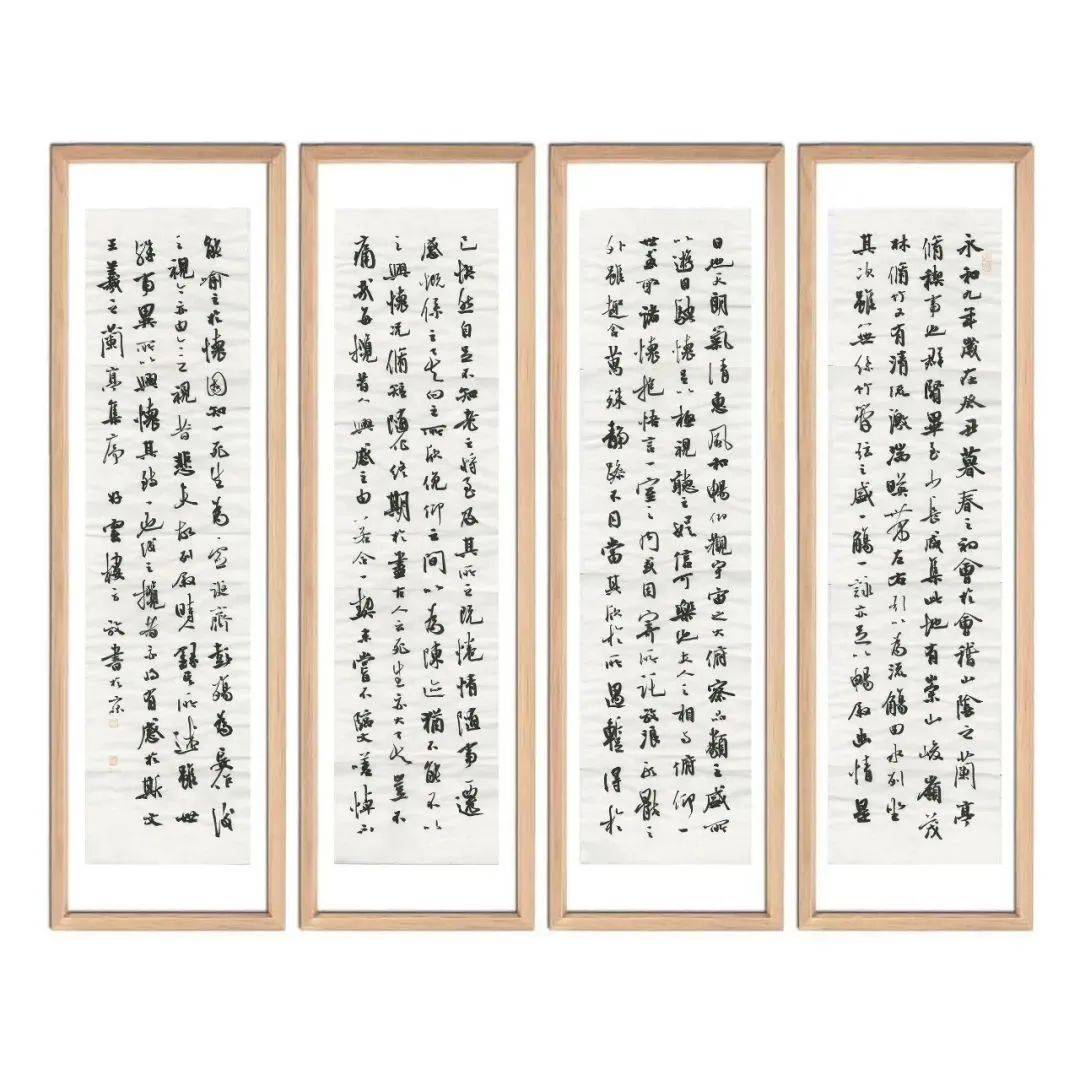 永和九年歲在癸丑暮春之初會於會稽山陰之蘭亭
脩稧事也群賢畢至少長咸集此地有崇山峻嶺茂
林脩竹又有清流激湍暎帶左右引以為流觴曲水列坐
其次雖無絲竹管弦之盛一觴一詠亦足以暢敘幽情是
日也天朗氣清惠風和暢仰觀宇宙之大俯察品類之盛所
以遊目騁懷足以極視聽之娛信可樂也夫人之相與俯仰一
世或取諸懷抱悟言一室之內或因寄所託放浪形骸之
外雖趣舍萬殊靜躁不同當其欣於所遇暫得於
己怏然自足不知老之將至及其所之既惓情隨事遷
感慨係之矣向之所欣俛仰之間以為陳迹猶不能不以
之興懷況脩短隨化終期於盡古人云死生亦大矣豈不
痛哉每攬昔人興感之由若合一契未嘗不臨文嗟悼不
能喻之於懷固知一死生為虛誕齊彭殤為妄作後
之視今亦由今之視昔悲夫故列敘時人錄其所述雖世
殊事異所以興懷其致一也後之攬者亦將有感於斯文
王羲之蘭亭集序 雲樓 書於京